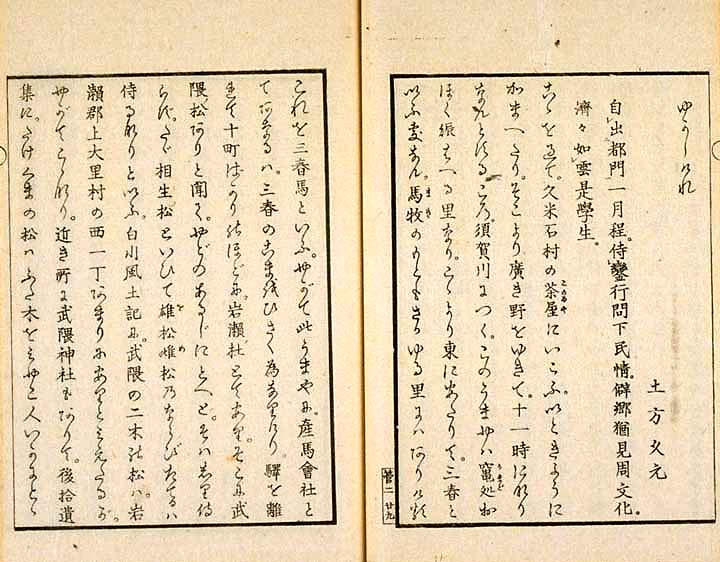 ゆかしけれ
土方久元
自出都門一月程。侍鑾行問下民情。僻郷猶見周文化。
濟々如雲是學生。
こゝを過て。久米石村の茶屋にいこふ。いときよらに
かまへたり。そこより廣き野をゆきて。十一時になり
なんとするころ。須賀川につく。このうまやハ竈処も
ほく賑はへる里なり。こゝより東にあたりて。三春と
いふ處なん。馬牧のもともさかゆる里にハありける
管二 廿九
これを三春馬といふ。やがて此うまやに。産馬會社と
てあるハ。三春のこまをひさく為なりけり。驛を離
れて十町ばかりのほどに。岩瀬杜とてあり。そこに武
隈ノ松ありと聞く。やどのあるじにとへど。そハしり侍
らず。たゞ相生ノ松といひて雄松雌松乃ならびたるハ
侍るなりといふ。白川風土記に。武隈の二木の松ハ。岩
瀬郡上大里村の西一丁あまりにありとみえたるが。
やがてこゝなり。近き所に武隈神社もありて。後拾遺
集に。たけくまの松ハふた木をみやこ人いかゞとゝ